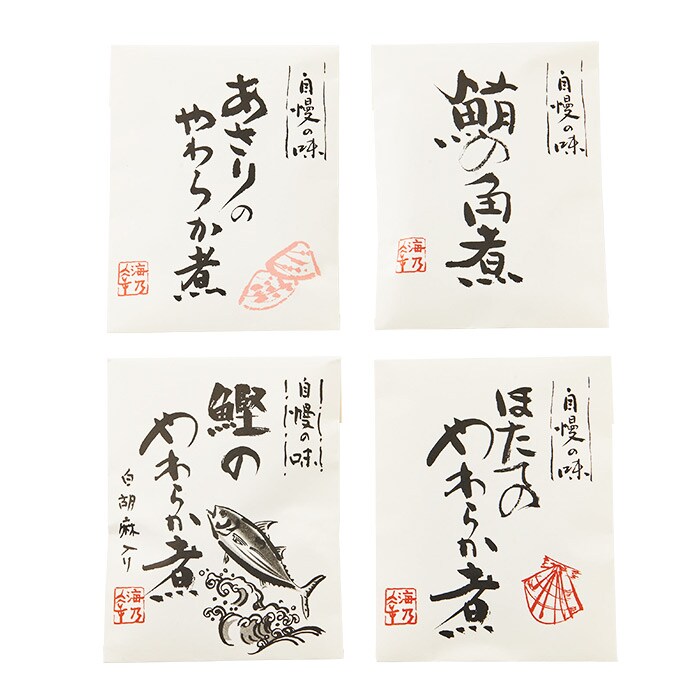 自慢の味
あさりの
やわらか煮
海乃幸
自慢の味
鮪の角煮
海乃幸
自慢の味
鰹の
やわらか煮
白胡麻入り
海乃幸
自慢の味
ほたての
やわらか煮
海乃幸